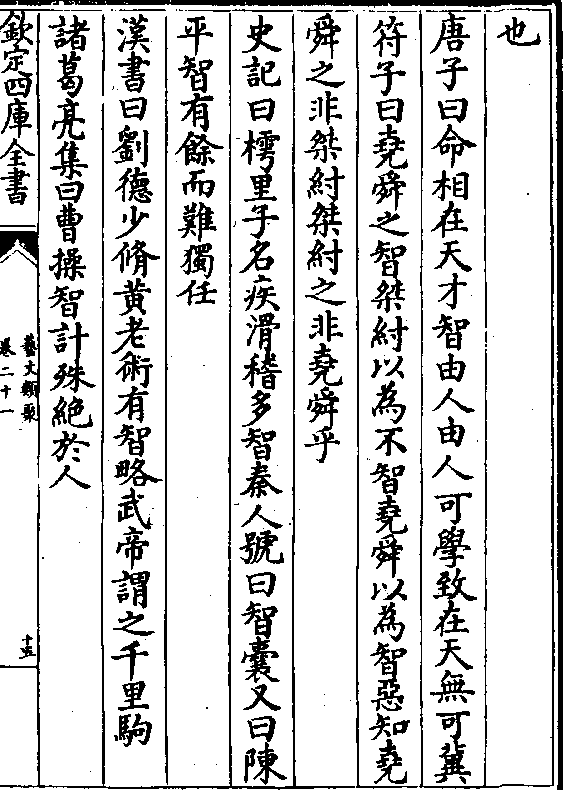 也
唐子曰命相在天才智由人由人可學致在天無可冀
符子曰堯舜之智桀紂以為不智堯舜以為智惡知堯
舜之非桀紂桀紂之非堯舜乎
史記曰樗里子名疾滑稽多智秦人號曰智囊又曰陳
平智有餘而難獨任
漢書曰劉德少脩黃老術有智略武帝謂之千里駒
諸葛亮集曰曹操智計殊絶於人
欽定四庫全書
藝文類聚
卷二十一
十五